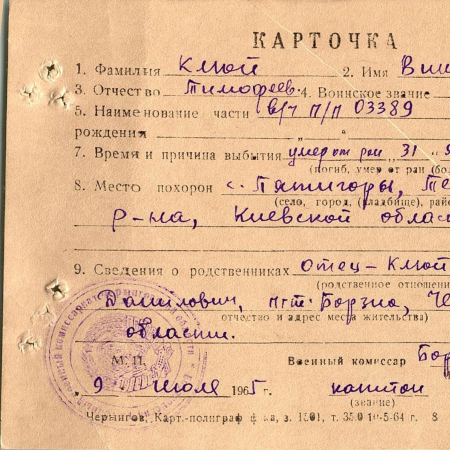 КАРТОЧКА
1. Фамилия Клюй 2. Имя
3. Отчество Тимофеев. 4. Воинское звание
5. Наименование части в/ч п/п 03389
рождения „ “
7. Время и причина выбытия умер от ран 31
(погиб, умер от ран (бол
8. Место похорон с. Пятигоры, Те
(село, город, (кладбище), рай
р-на, Киевской облас
9. Сведения о родственниках Отец – Клюй
(родственное отношени
Данилович, пгт. Борзна, Че
отчество и адрес места жительства)
области.
М. П. Военный комиссар Бор
9 июля 1965 г. капитан
(звание)
Чернигов, Карт.-полиграф ф-ка, з. 1501, т. 350 10-5-64 г. 8